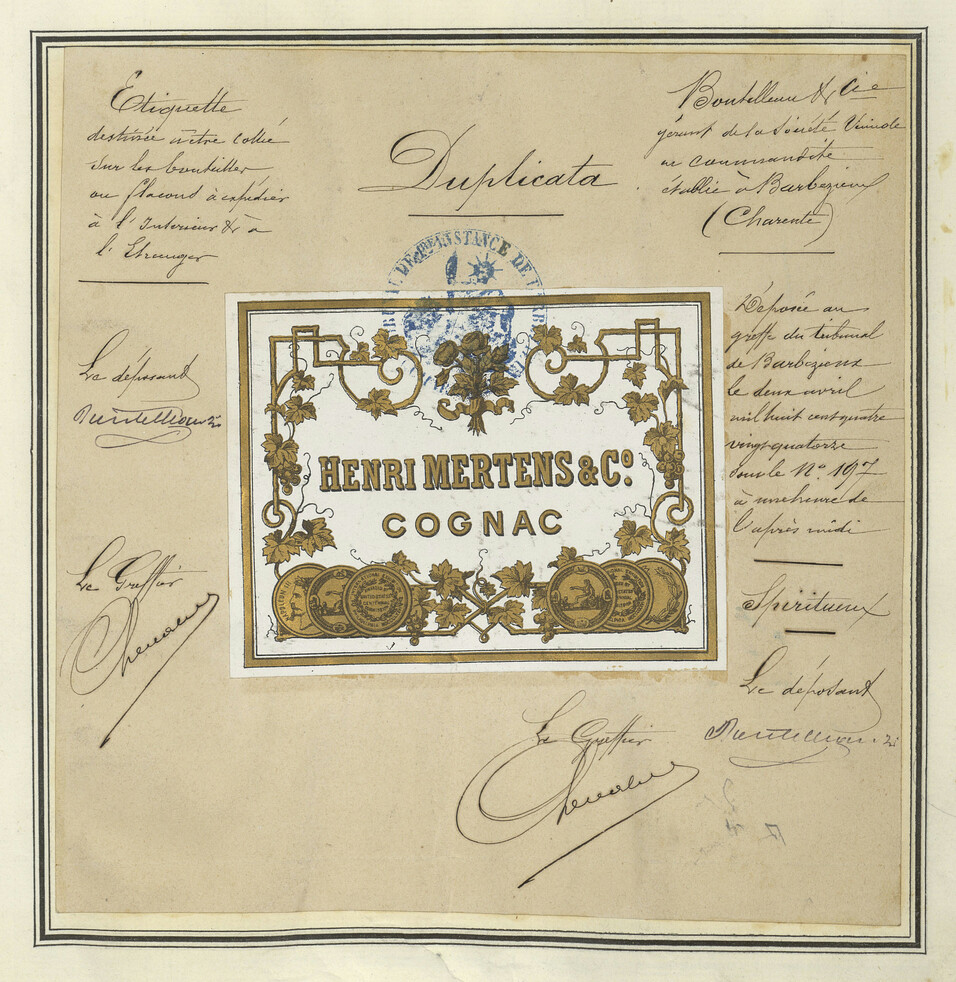 Etiquette
destinée à être collée
sur les bouteilles
ou flacons à expédier
à l'Interieur & à
l'Etranger
Duplicata
Boutelleau & Cie
gérant de la Société Vinicole
en commandité
établie à Barbezieux
(Charente)
TRIBUNAL DE 1ERE INSTANCE DE
HENRI MERTENS & Co.
COGNAC
Déposée au
greffe du tribunal
de Barbezieux
le deux avril
mil huit cent quatre
vingt quatorze
sous le No 197
à une heure de
l'après midi
Spiritueux
Le déposant
Le Greffier
Le déposant
Le Greffier